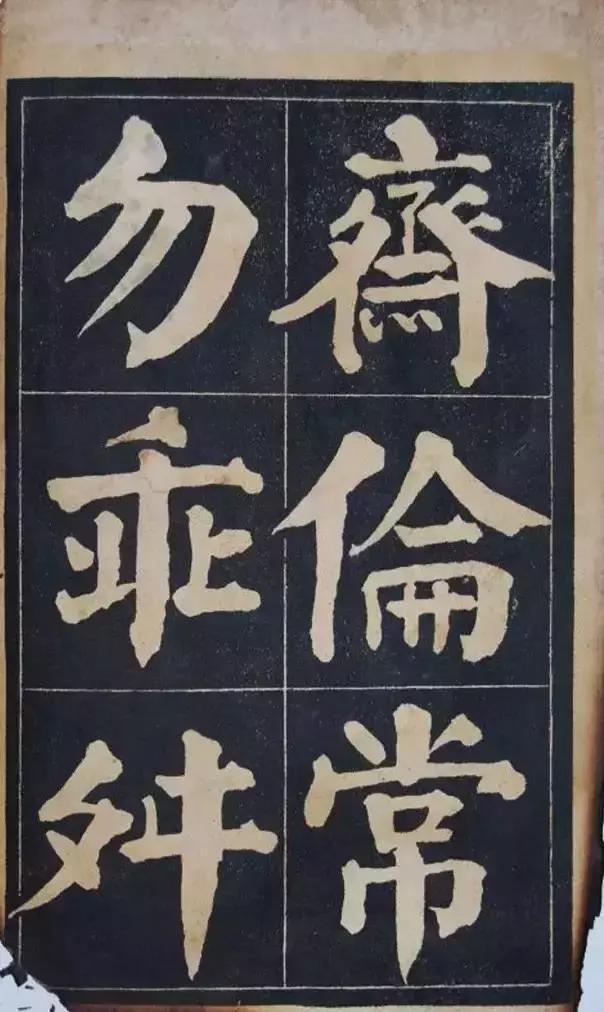 齋倫常
勿乖舛